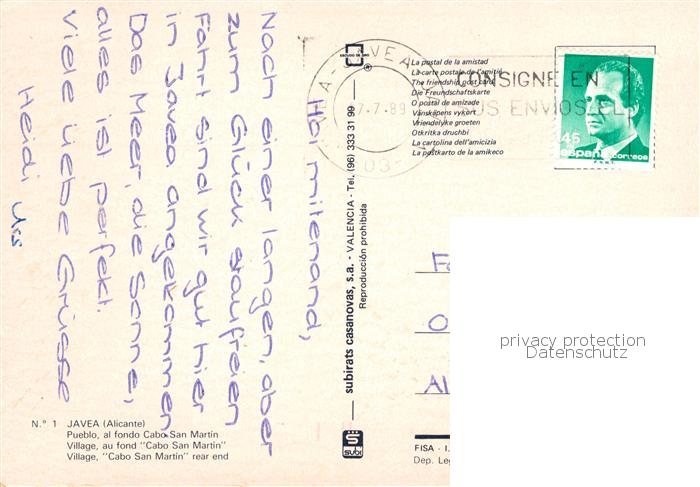 Hoi mitenand,
Nach einer langen, aber
zum Glück staufreien
Fahrt sind wir gut hier
in Javea angekommen.
Das Meer, die Sonne,
alles ist perfekt.
Viele liebe Grüsse
Heidi Urs
N.º 1 JAVEA (Alicante)
Pueblo, al fondo Cabo San Martín
Village, au fond "Cabo San Martin"
Village, "Cabo San Martin" rear end
ESCUDO DE ORO
®
subirats casanovas, s.a. - VALENCIA - Tel. (96) 333 31 99
Reproducción prohibida
subi
La postal de la amistad
La carte postale de l'amitié
The friendship post card
Die Freundschaftskarte
O postal de amizade
Vänskäpens vykert
Vriendelyke groeten
Otkritka druchbi
La cartolina dell'amicizia
La poŝtkarto de la amikeco
JAVEA
7.7.89
03
CONSIGNE EN
SUS ENVIOS EL
45
españa correos
F
O
Al
privacy protection
Datenschutz
FISA - I.
Dep. Leg